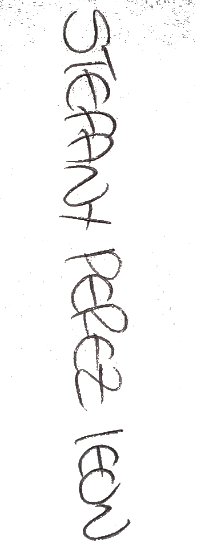 STEFANY PEREZ LEON